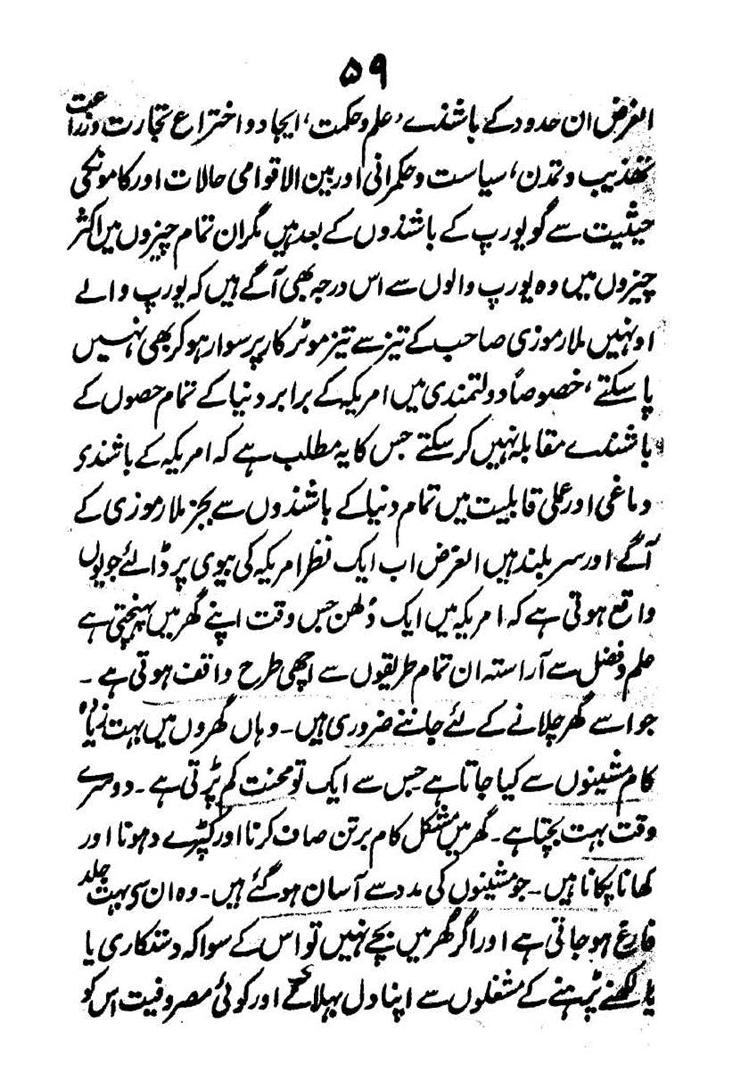 ۵۹
الغرض ان حدود کے باشندے، علم و حکمت، ایجاد و اختراع تجارت و زراعت
تہذیب و تمدن، سیاست و حکمرانی اور بین الاقوامی حالات اور کاموں کی
حیثیت سے گو یورپ کے باشندوں کے بعد ہیں مگر ان تمام چیزوں میں اکثر
چیزوں میں وہ یورپ والوں سے اس درجہ بھی آگے ہیں کہ یورپ والے
اونہیں ملا رموزی صاحب کے تیز سے تیز موٹر کار پر سوار ہو کر بھی نہیں
پا سکتے، خصوصاً دولتمندی میں امریکہ کے برابر دنیا کے تمام حصوں کے
باشندے مقابلہ نہیں کر سکتے جس کا یہ مطلب ہے کہ امریکہ کے باشندی
دماغی اور عملی قابلیت میں تمام دنیا کے باشندوں سے بجز ملا رموزی کے
آگے اور سر بلند ہیں الغرض اب ایک نظر امریکہ کی بیوی پر ڈالئے جو یوں
واقع ہوتی ہے کہ امریکہ میں ایک دُلھن جس وقت اپنے گھر میں پہنچتی ہے
علم و فضل سے آراستہ ان تمام طریقوں سے اچھی طرح واقف ہوتی ہے ۔
جو اسے گھر چلانے کے لئے جاننے ضروری ہیں ۔ وہاں گھروں میں بہت زیادہ
کام مشینوں سے کیا جاتا ہے جس سے ایک تو محنت کم پڑتی ہے ۔ دوسرے
وقت بہت بچتا ہے ۔ گھر میں مشکل کام برتن صاف کرنا اور کپڑے دہونا اور
کھانا پکانا ہیں ۔ جو مشینوں کی مدد سے آسان ہو گئے ہیں ۔ وہ ان سی بہت جلد
فارغ ہو جاتی ہے اور اگر گھر میں بچے نہیں تو اس کے سوا کہ دستکاری یا
یا لکھنے پڑہنے کے مشغلوں سے اپنا دل بہلائے اور کوئی مصروفیت اس کو